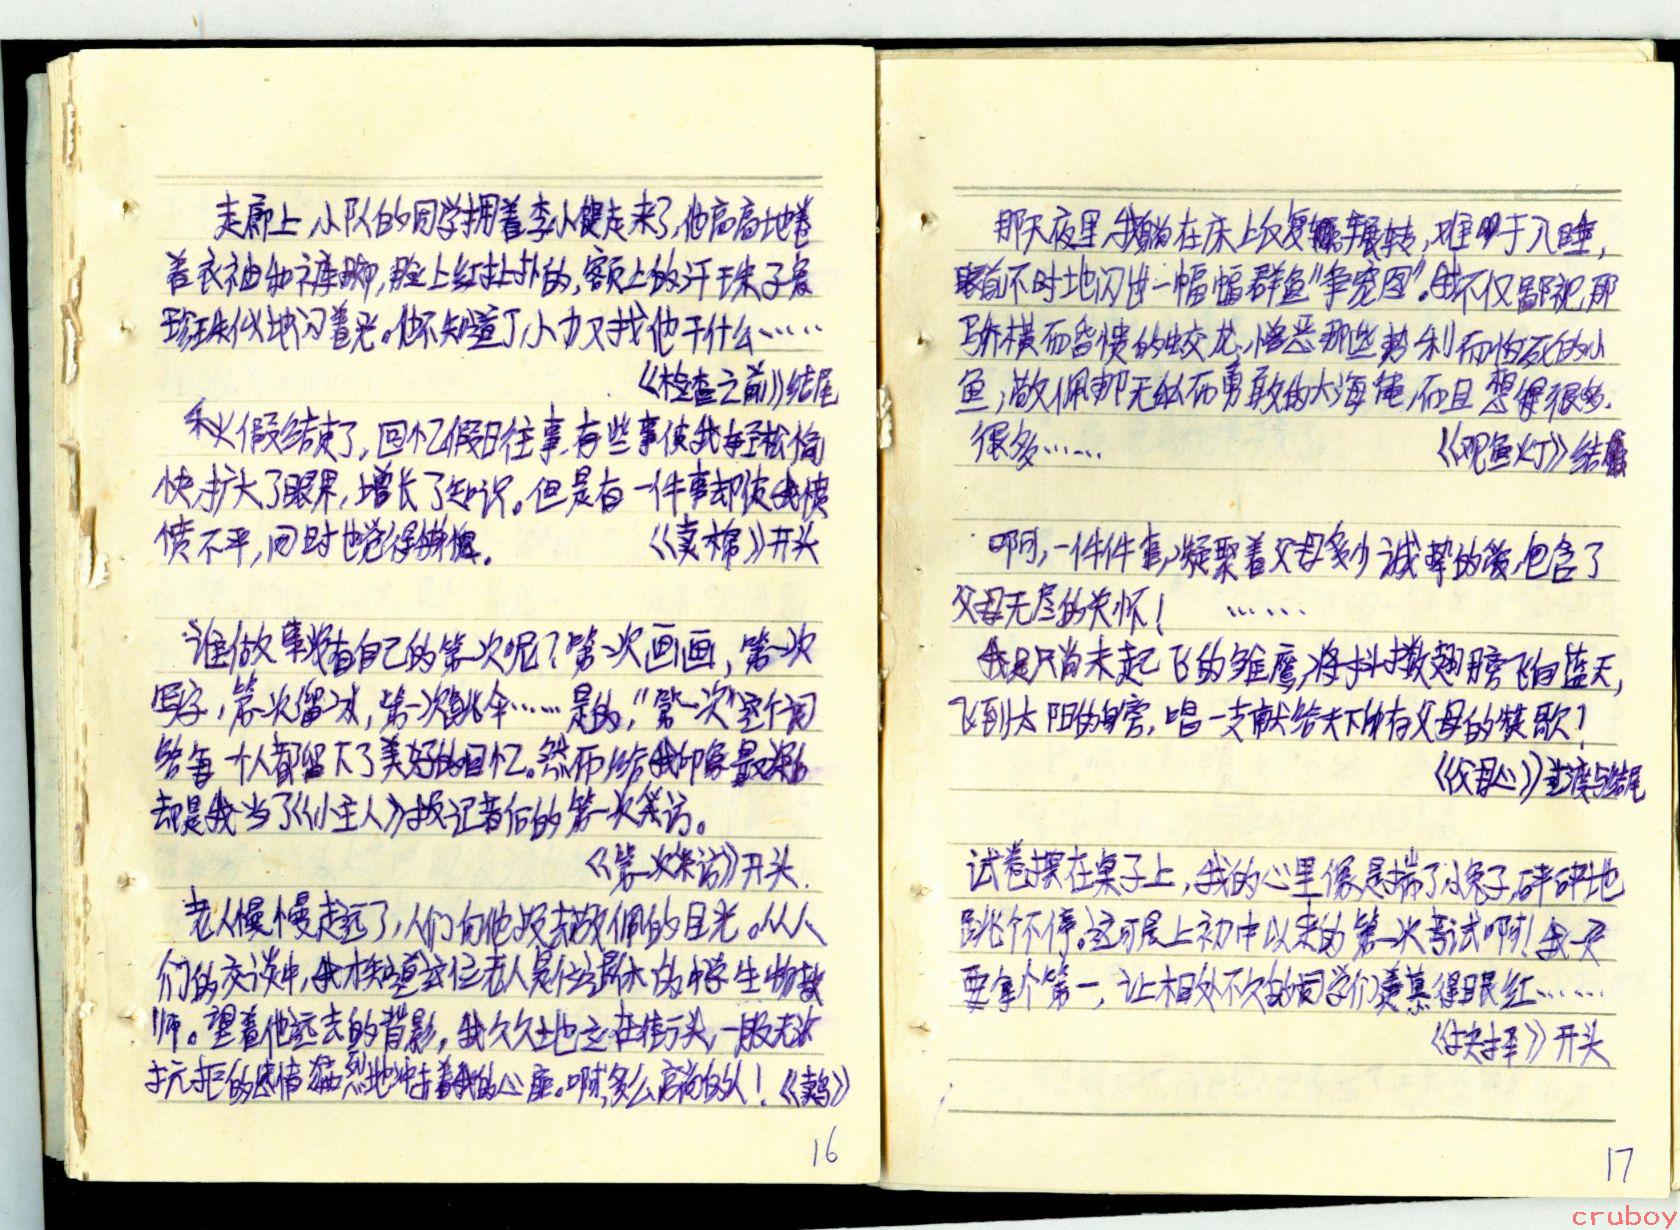 走廊上，小队的同学拥着李小健走来了，他高高地卷
着衣袖和裤脚，脸上红扑扑的，额上的汗珠子象
珍珠似地闪着光。他不知道丁小力又找他干什么……
《检查之前》结尾
秋假结束了，回忆假日往事，有些事使我轻松愉
快，扩大了眼界，增长了知识。但是有一件事却使我愤
愤不平，同时也觉得惭愧。 《卖棉》开头
谁做事没有自己的第一次呢？第一次画画，第一次
写字，第一次溜冰，第一次跳伞……是的，"第一次"这个词
给每一个人都留下了美好的回忆。然而给我印象最深的
却是我当了《小主人》报记者后的第一次采访。
《第一次采访》开头.
老人慢慢走远了，人们向他投去敬佩的目光。从人
们的交谈中，我才知道这位老人是位退休的中学生物教
师。望着他远去的背影，我久久地立在街头，一股无法
抗拒的感情猛烈地冲打着我的心扉。啊，多么高尚的人！《卖鸟》
16
那天夜里，我躺在床上反复辗转，难于入睡，
眼前不时地闪出一幅幅群鱼"争宠图"。我不仅鄙视那
骄横而昏愦的蛟龙，憎恶那些势利而怕死的小
鱼，敬佩那无私而勇敢的大海龟，而且想得很多.
很多…… 《观鱼灯》结尾
啊，一件件事，凝聚着父母多少诚挚的爱，包含了
父母无尽的关怀！ ……
我是只尚未起飞的雏鹰，将抖擞翅膀飞向蓝天，
飞到太阳的身旁，唱一支献给天下所有父母的赞歌！
《父母心》过渡与结尾
试卷摆在桌子上，我的心里像是揣了小兔子，砰砰地
跳个不停。这可是上初中以来的第一次考试啊！我一定
要拿个第一，让相处不久的同学们羡慕得眼红……
《抉择》开头
17
cruboy